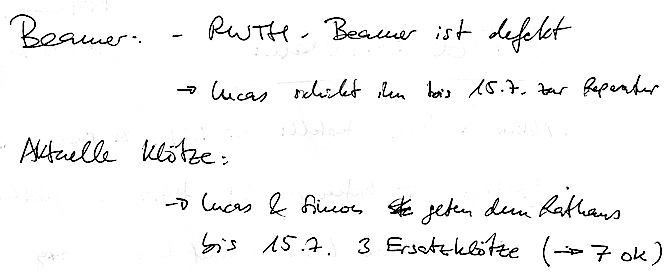 Beamer: - RWTH - Beamer ist defekt
→ Lucas schickt ihn bis 15.7. zur Reperatur
Aktuelle Klötze:
→ Lucas & Simon geben dem Rathaus
bis 15.7. 3 Ersatzklötze (→ 7 ok)